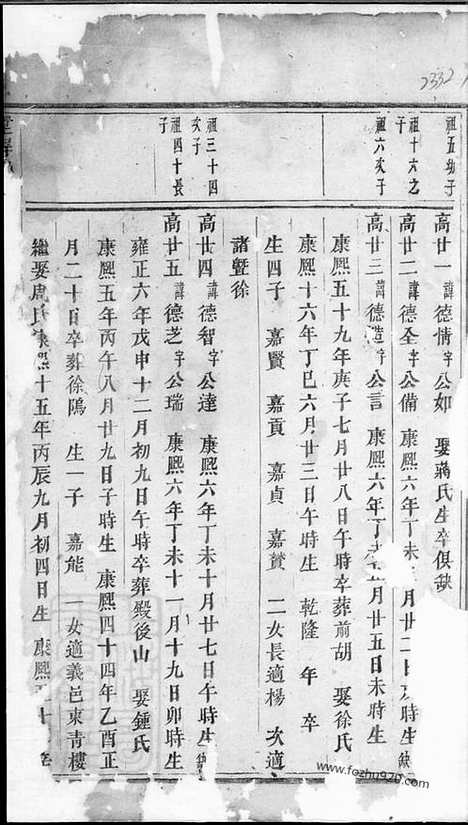 2332
祖五幼子
高廿一 諱德情字公如 娶蔣氏生卒俱缺
祖十六之子
高廿二 諱德全字公備 康熙六年丁未 月廿二日 時生 缺
祖六次子
高廿三 諱德造字公言 康熙六年丁 月廿五日未時生
康熙五十九年庚子七月廿八日午時卒葬前胡 娶徐氏
康熙十六年丁巳六月廿三日午時生 乾隆 年 卒
生四子 嘉賢 嘉貢 嘉貞 嘉贊 二女長適楊 次適
諸暨徐
祖三十四次子
高廿四 諱德智字公達 康熙六年丁未十月廿七日午時生
祖四十長子
高廿五 諱德芝字公瑞 康熙六年丁未十一月十九日卯時生
雍正六年戊申十二月初九日午時卒葬殿後山 娶鍾氏
康熙五年丙午八月廿九日子時生 康熙四十四年乙酉正
月二十日卒葬徐隖 生一子 嘉能 一女適義邑東青樓
繼娶周氏康熙十五年丙辰九月初四日生 康熙
www.fozhu920.com